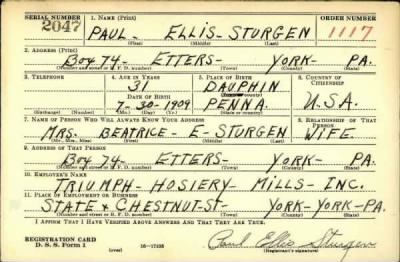 SERIAL NUMBER 1. NAME (Print) ORDER NUMBER
2047 PAUL - ELLIS - STURGEN 1117
(First) (Middle) (Last)
2. ADDRESS (Print)
Box 74 - ETTERS - YORK - PA.
(Number and street or R. F. D. number) (Town) (County) (State)
3. TELEPHONE 4. AGE IN YEARS 5. PLACE OF BIRTH 6. COUNTRY OF CITIZENSHIP
31 DAUPHIN
DATE OF BIRTH (Town or county)
7-30-1909 PENNA. U.S.A.
(Exchange) (Number) (Mo.) (Day) (Yr.) (State or country)
7. NAME OF PERSON WHO WILL ALWAYS KNOW YOUR ADDRESS 8. RELATIONSHIP OF THAT PERSON
MRS. BEATRICE - E - STURGEN WIFE
(Mr., Mrs., Miss) (First) (Middle) (Last)
9. ADDRESS OF THAT PERSON
Box 74 - ETTERS - YORK - PA.
(Number and street or R. F. D. number) (Town) (County) (State)
10. EMPLOYER'S NAME
TRIUMPH - HOSIERY - MILLS - INC.
11. PLACE OF EMPLOYMENT OR BUSINESS
STATE & CHESTNUT-ST- YORK-YORK-PA.
(Number and street or R. F. D. number) (Town) (County) (State)
I AFFIRM THAT I HAVE VERIFIED ABOVE ANSWERS AND THAT THEY ARE TRUE.
REGISTRATION CARD Paul Ellis Sturgen
D. S. S. Form 1 (over) 16-17105 (Registrant's signature)